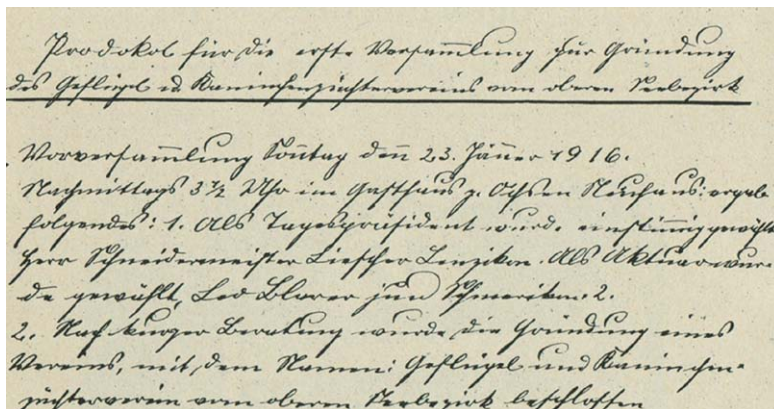 Prodokol für die erste Versammlung zur Gründung
des Geflügel u Kaninchenzüchtervereins vom oberen Seebezirk
Vorversammlung Sontag den 23. Jänner 1916.
Nachmittags 3½ Uhr im Gasthaus z. Ochsen Neuhaus: ergab
folgendes: 1. Als Tagespräsident wurde einstimig gewählt
Herr Schneidermeister Liescher Lenzikon. Als Aktuar wur-
de gewählt, Leo Blarer jun Schmerikon. 2.
2. Nach kurzer Beratung wurde die Gründung eines
Vereins, mit dem Namen: Geflügel und Kaninchen-
züchterverein vom oberen Seebezirk beschlossen